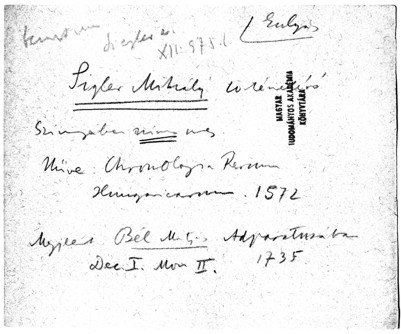 Gulyás
XII. 975.
Sigler Mihály történetíró
MAGYAR
TUDOMÁNYOS AKADÉMIA
KÖNYVTÁRA
Szinnyeiben nincs meg.
Műve: Chronologia Rerum
Hungaricarum. 1572
Megjelent Bél Mátyás Adparatusában
Dec. I. Mon II. 1735